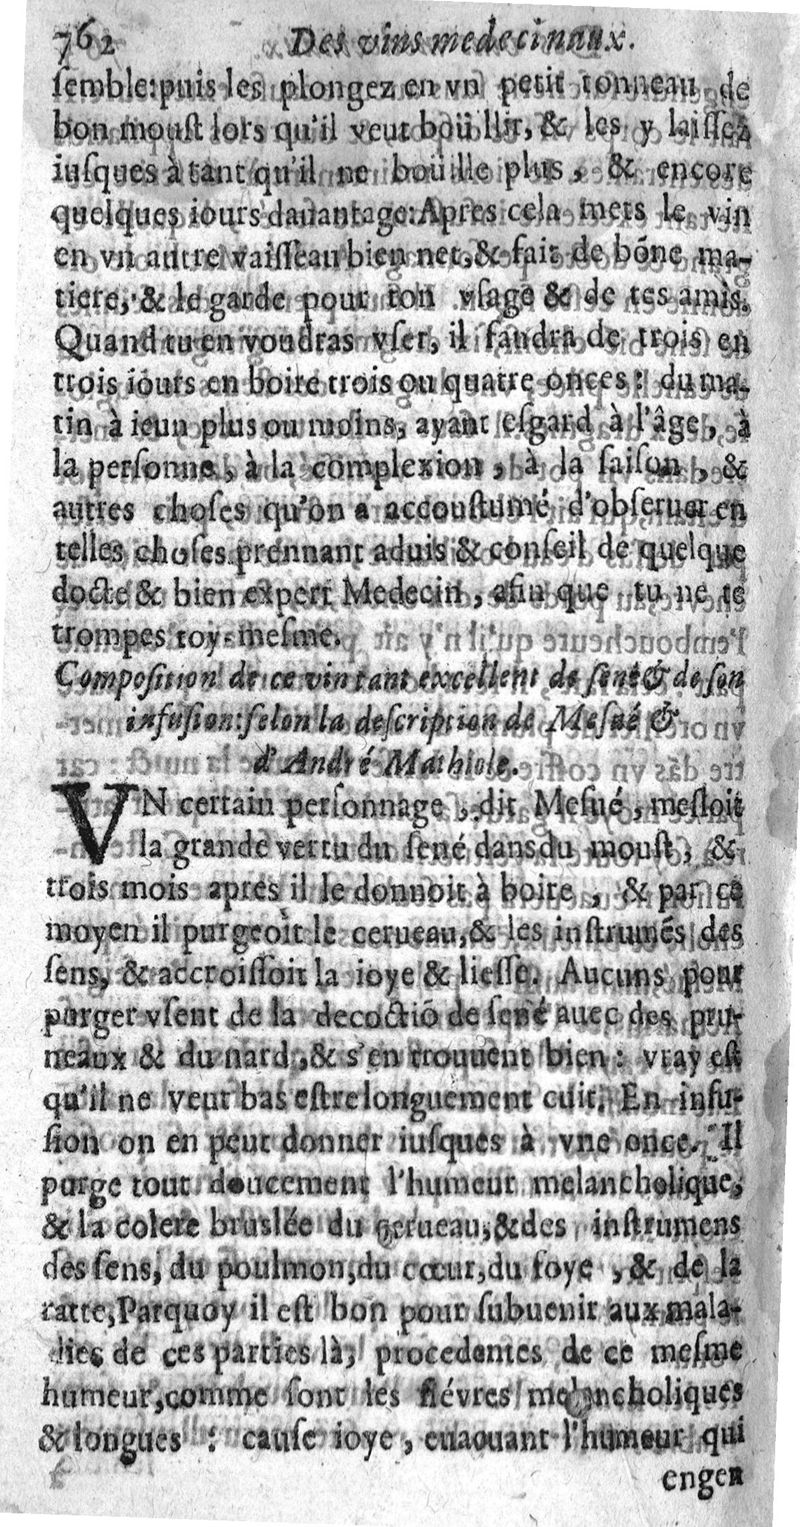 762 Des vins medecinaux.
semble: puis les plongez en vn petit tonneau de
bon moust lors qu'il veut boüillir, & les y laissez
iusques à tant qu'il ne boüille plus, & encore
quelques iours dauantage: Apres cela mets le vin
en vn autre vaisseau bien net, & fait de bõne ma-
tiere, & le garde pour ton vsage & de tes amis.
Quand tu en voudras vser, il faudra de trois en
trois iours en boire trois ou quatre onces: du ma-
tin à ieun plus ou moins, ayant esgard à l'âge, à
la personne, à la complexion, à la saison, &
autres choses qu'on a accoustumé d'obseruer en
telles choses prennant aduis & conseil de quelque
docte & bien expert Medecin, afin que tu ne te
trompes toy-mesme.
Composition de ce vin tant excellent de sené & de son
infusion: selon la description de Mesué &
d'André Mathiole.
VN certain personnage, dit Mesué, mesloit
la grande vertu du sené dans du moust, &
trois mois aprés il le donnoit à boire, & par ce
moyen il purgeoit le cerueau, & les instrumẽs des
sens, & accroissoit la ioye & liesse. Aucuns pour
purger vsent de la decoctiõ de sené auec des pru-
neaux & du nard, & s'en trouuent bien: vray est
qu'il ne veut bas estre longuement cuit. En infu-
sion on en peut donner iusques à vne once. Il
purge tout doucement l'humeur melancholique,
& la colere bruslée du cerueau, & des instrumens
des sens, du poulmon, du cœur, du foye, & de la
ratte, Parquoy il est bon pour subuenir aux mala-
dies de ces parties là, procedentes de ce mesme
humeur, comme sont les fiévres melancholiques
& longues: cause ioye, euaouant l'humeur qui
engen